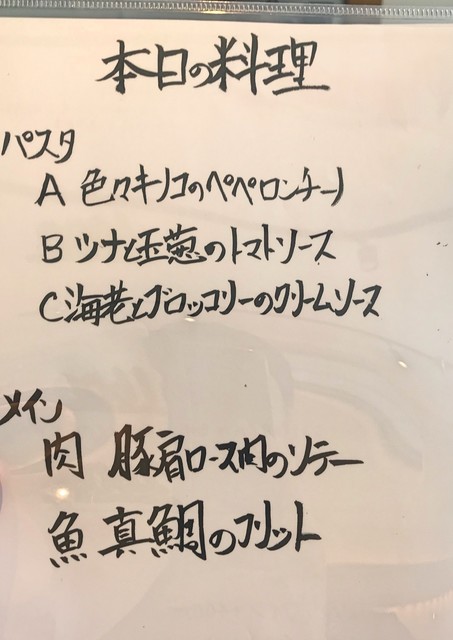 本日の料理
パスタ
A 色々キノコのペペロンチーノ
B ツナと玉葱のトマトソース
C 海老とブロッコリーのクリームソース
メイン
肉 豚肩ロース肉のソテー
魚 真鯛のフリット